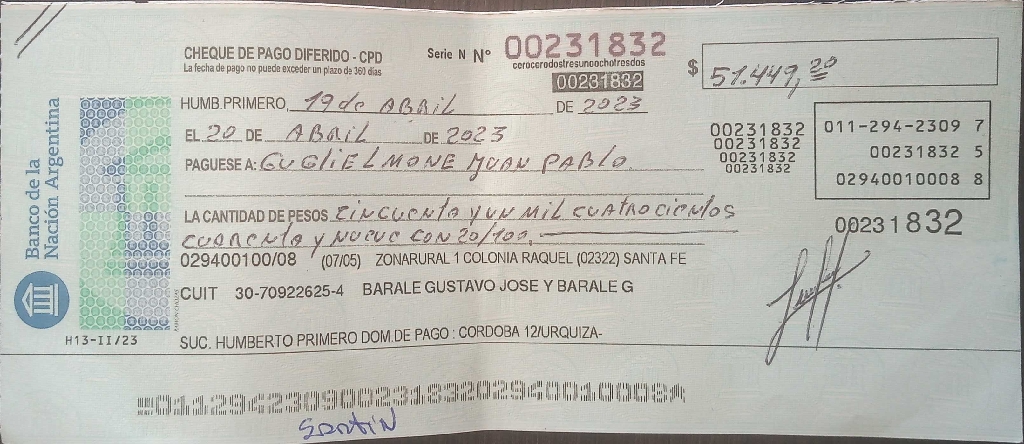 CHEQUE DE PAGO DIFERIDO - CPD
La fecha de pago no puede exceder un plazo de 360 días
Serie N Nº 00231832
cerocerodostresunoochotresdos
00231832
$ 51.449,20
HUMB.PRIMERO, 19 de ABRIL DE 2023
EL 20 DE ABRIL DE 2023
PAGUESE A: GUGLIELMONE JUAN PABLO
00231832
00231832
00231832
00231832
011-294-2309 7
00231832 5
02940010008 8
LA CANTIDAD DE PESOS CINCUENTA Y UN MIL CUATROCIENTOS
CUARENTA Y NUEVE CON 20/100.
00231832
029400100/08 (07/05) ZONARURAL 1 COLONIA RAQUEL (02322) SANTA FE
CUIT 30-70922625-4 BARALE GUSTAVO JOSE Y BARALE G
SUC. HUMBERTO PRIMERO DOM.DE PAGO : CORDOBA 12/URQUIZA-
Banco de la
Nación Argentina
H13-II/23
01129423090023183202940010008